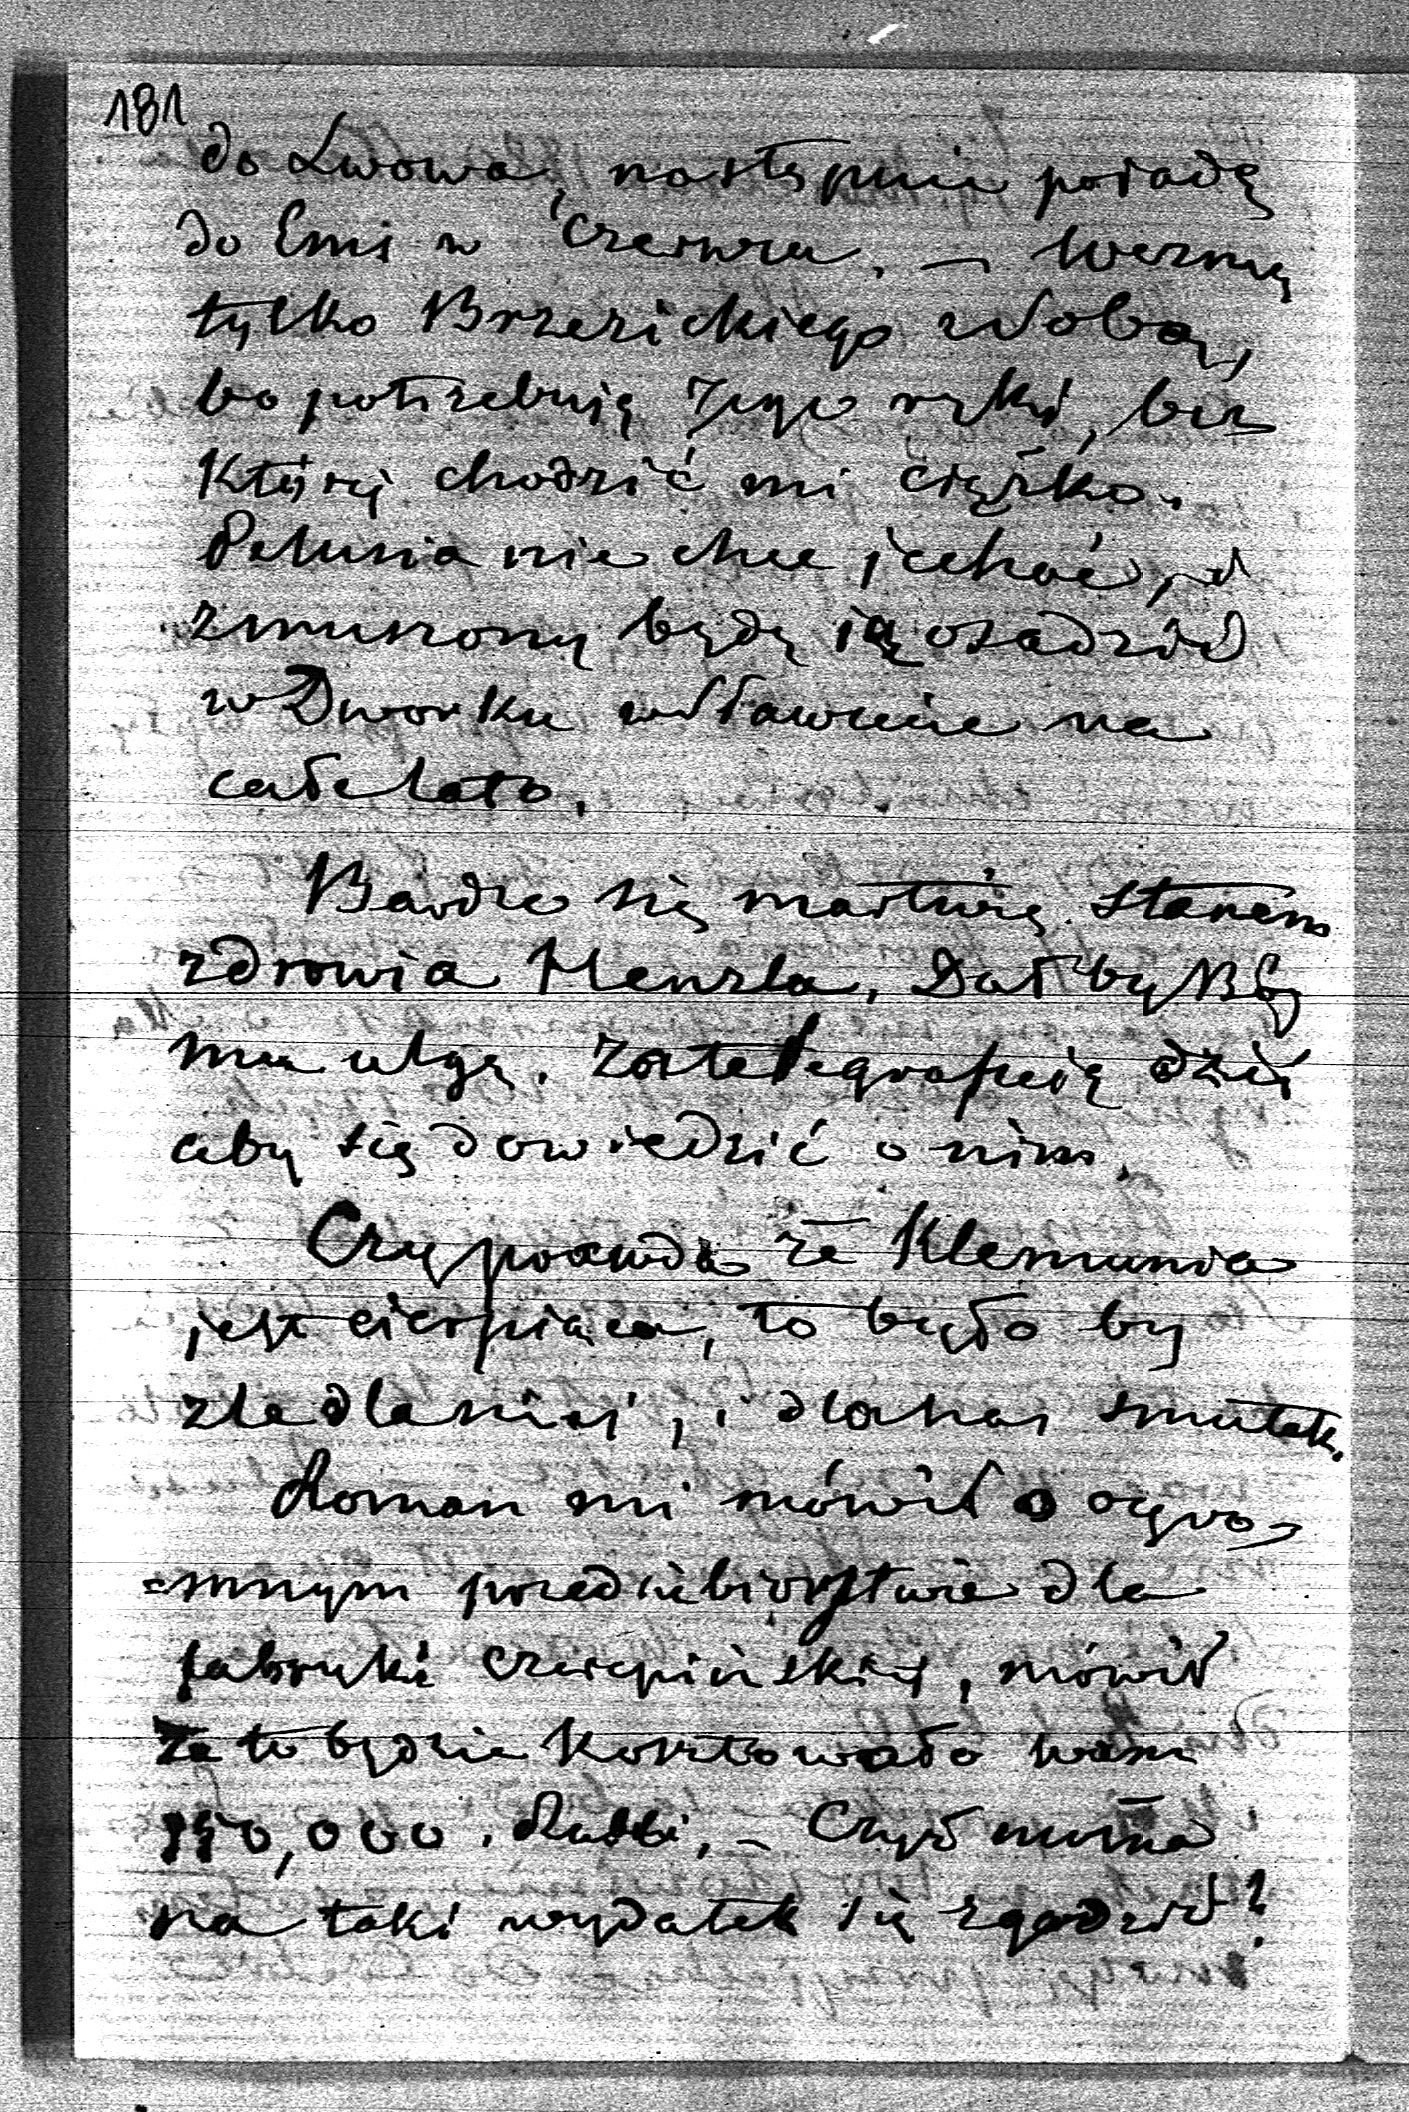 181
do Lwowa, następnie poiadę
do Ems w Czerwcu. – Wezmę
tylko Brzezickiego z sobą,
bo potrzebuję Jego ręki, bez
której chodzić mi ciężko.
Pelunia nie chce jechać, i
zmuszony będę ią osadzić
w Dworku w Sławucie na
całe lato.
Bardzo się martwię stanem
zdrowia Henzla. Dał by Bóg
mu ulgę. Zatelegrafuię dziś
aby się dowiedzić o nim.
Czy prawda że Klemunia
jest cierpiąca, to było by
zle dla niej, i dla nas smutek.
Roman mi mówił o ogro-
=mnym przedsiębiorstwie dla
fabryki czerepińskiej, mówił
że to będzie kosztowało nam
0,000. Rubli. – Czyż można
na taki wydatek się zgodzić?